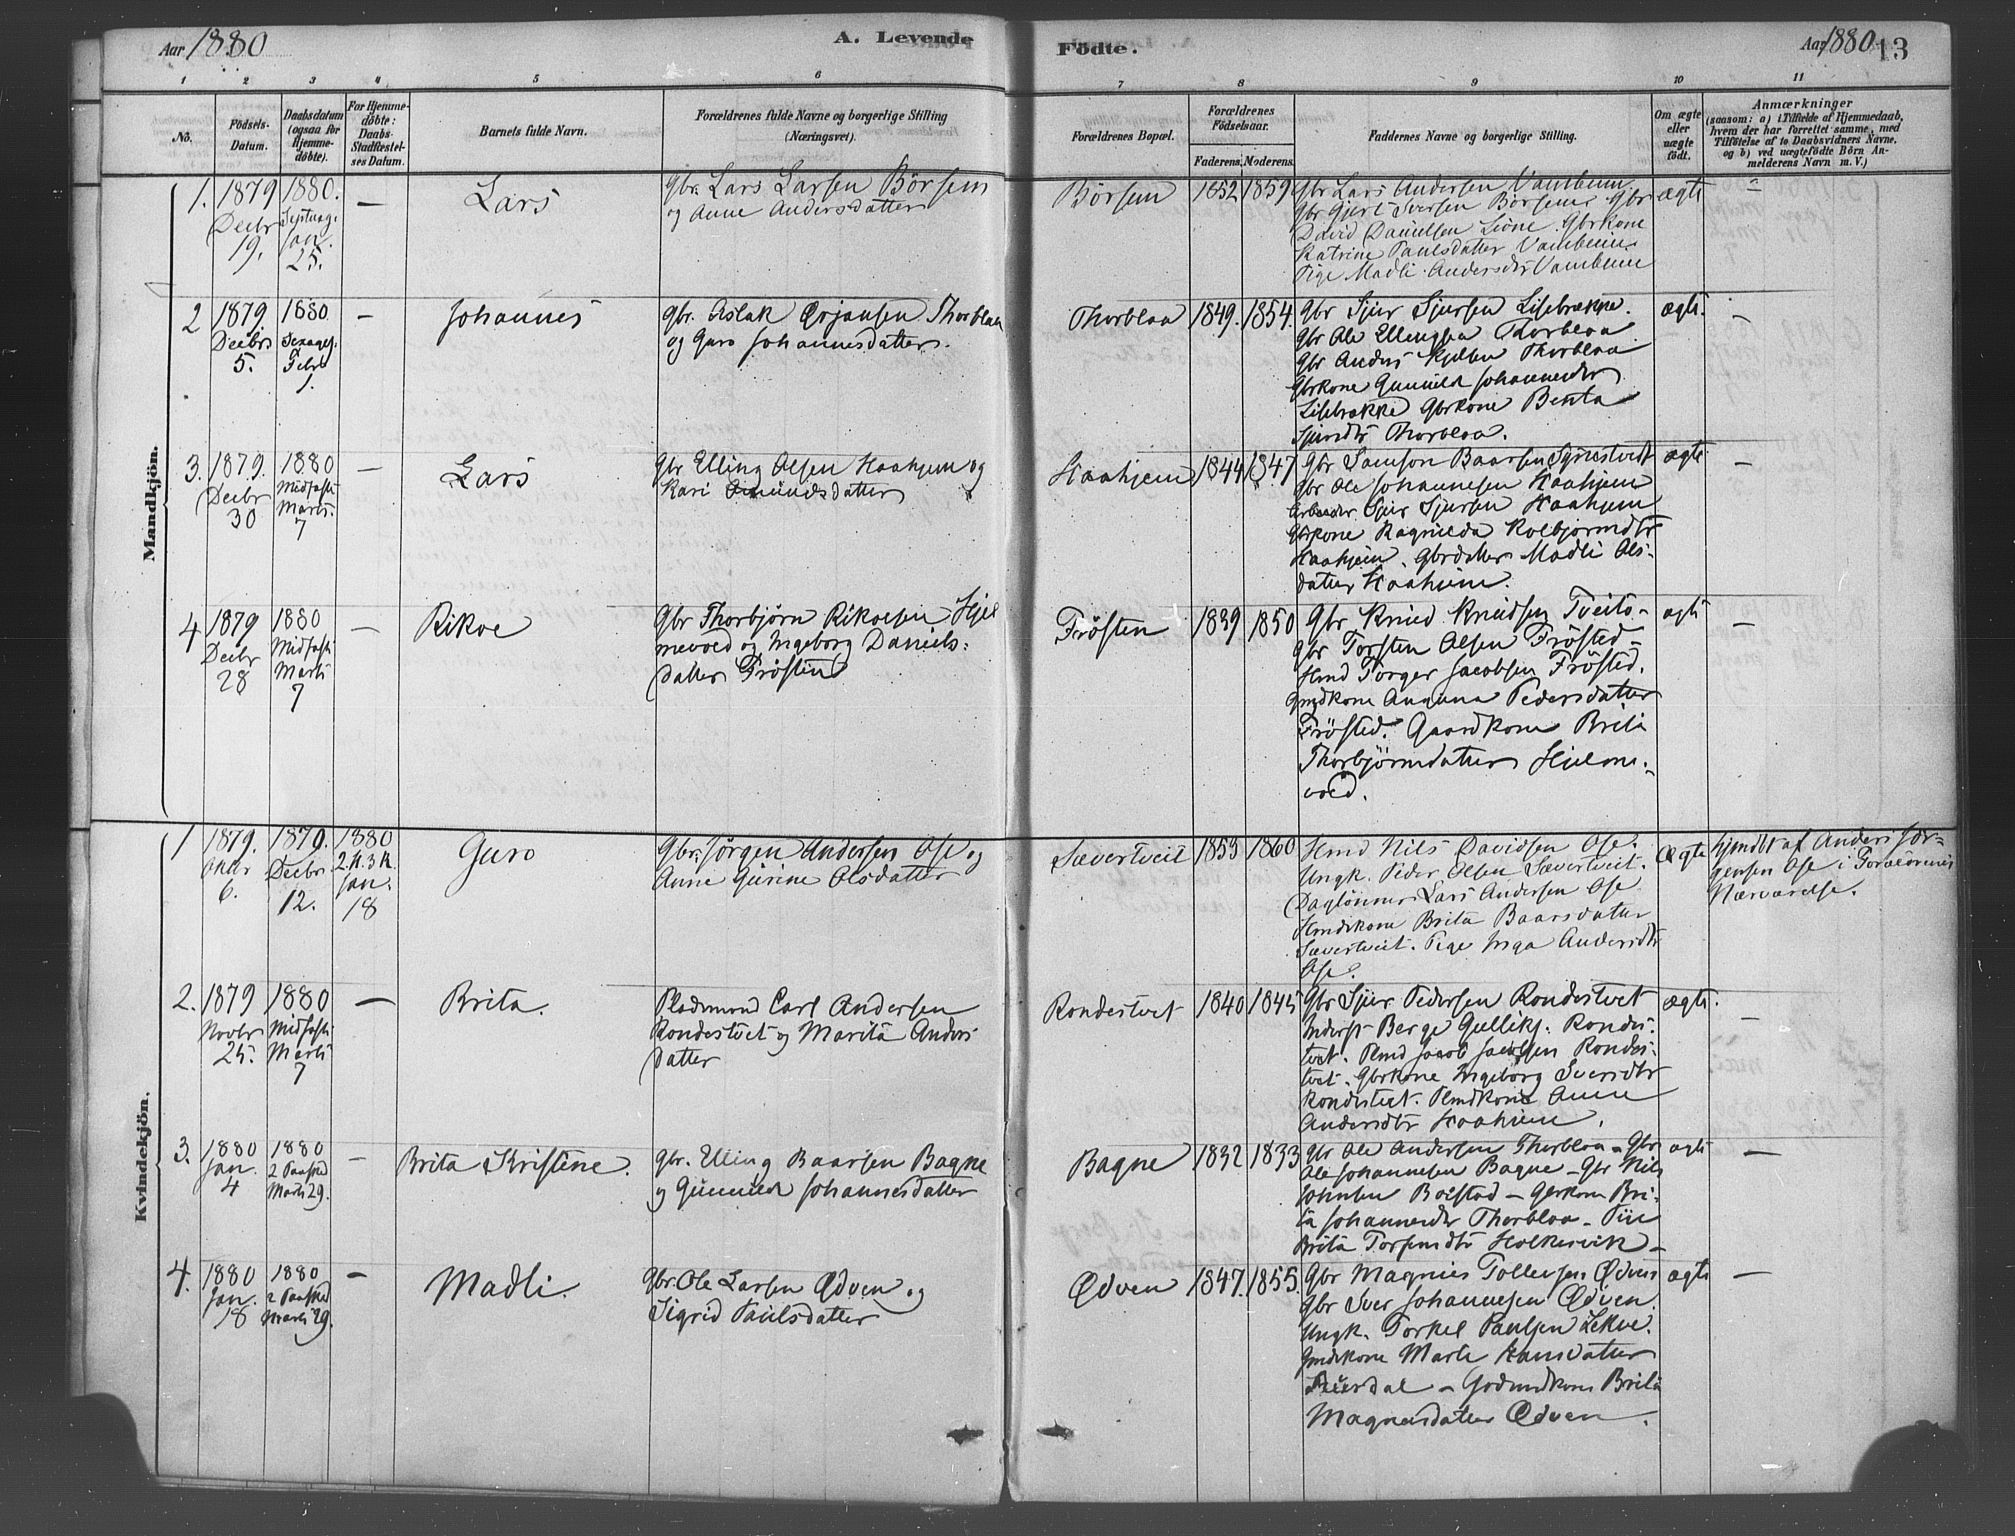 Aar 1880
A. Levende
Födte.
Aar 1880
13
1 2 3 4 5 6 7 8 9 10 11
No.
Födsels-
Datum.
Daabsdatum
(ogsaa for
Hjemme-
döbte).
For Hjemme-
döbte:
Daabs-
Stadfæstel-
ses Datum.
Barnets fulde Navn.
Forældrenes fulde Navne og borgerlige Stilling
(Næringsvei).
Forældrenes Bopæl.
Forældrenes
Födselsaar.
Faderens. Moderens.
Faddernes Navne og borgerlige Stilling.
Om ægte
eller
uægte
födt.
Anmærkninger
(saasom: a) i Tilfælde af Hjemmedaab,
hvem der har forrettet samme, med
Tilföielse af to Daabsvidners Navne,
og b) ved uægtefödte Börn An-
melderens Navn m. V.)
Mandkjön.
1.
1879
Decbr
19.
1880.
Septuag.
Jan.
25.
—
Lars
Gbr. Lars Larsen Börsem
og Anne Andersdatter
Börsem
1852
1859
Gbr Lars Andersen Vambeim
Gbr Gjert Iversen Börsem Gbr
David Danielsen Lione. Gbrkone
Katrine Paulsdatter Vambeim
Pige Madli Andersdtr Vambeim
ægte
2
1879
Decbr
5.
1880
Sexages.
Febr
1.
—
Johannes
Gbr. Aslak Orjansen Thorbloa
og Guro Johannesdatter.
Thorbloa
1849.
1854.
Gbr Sjur Sjursen Lisebrække.
Gbr Ole Ellingsen Thorbloa
Gbr Anders Kjelsen Thorbloa
Gbrkone Gunnild Johannesdtr
Lisebrække Gbrkone Benta
Sjursdtr Thorbloa.
ægte.
—
3.
1879.
Decbr
30
1880
Midfaste
Marts.
7
—
Lars
Gbr Elling Olsen Haaheim og
Kari Amundsdatter
Haaheim
1844
1847
Gbr Samson Baarsen Synestvedt
Gbr Ole Johannesen Haaheim
Arbeider Sjur Sjursen Haaheim
Gbrkone Ragnilda Kolbjornsdtr
Haaheim. Gbrdatter Madli Ols-
datter Haaheim.
ægte
—
4
1879
Decbr
28
1880
Midfaste
Marts
7
—
Rikoe
Gbr Thorbjörn Rikoesen Hjel
mevold og Ingeborg Daniels-
datter Fròsten
Frösten
1839
1850
Gbr Knud Knudsen Tveito-
Gbr Torsten Olsen Frösted-
Hmd Torger Jacobsen Frösted.
Gmdkone Anguna Pedersdatter
Frösted. Gaardkone Brita
Thorbjörnsdatter Hjelme-
vold.
ægte
—
Kvindekjön.
1
1879.
Oktbr
6.
1879.
Decbr.
12.
1880
2.H.3K.
Jan.
18
Guro
Gbr. Jörgen Andersen Ose og
Anne Gurine Olsdatter
Sævertveit
1853
1860
Hmd Nils Davidsen Ose.
Ungk. Peder Olsen Sævertveit.
Daglönner Lars Andersen Ose
Hmdskone Brita Baarsdatter
Sævertveit. Pige Inga Andersdtr
Ose.
Ægte
hjemdbt af Anders Jör-
gensen Ose i Forældrenes
Nærværelse.
2.
1879
Novbr
25.
1880
Midfaste
Marts
7
—
Brita.
Pladsmand Carl Andersen
Rondestvet og Marita Anders
datter
Rondestvet
1840
1845
Gbr Sjur Pedersen Rondestvet
Inderst Berge Gulliks. Rondes-
tvet. Plmd Jacob Jacobsen Rondes-
tvet. Gbrkone Ingeborg Iversdtr
Rondestvet. Plmdkone Anna
Andersdtr Haaheim.
ægte.
—
3.
1880
Jan.
4
1880
2 Paasked
Marts 29.
—
Brita Kristene.
Gbr. Elling Baarsen Bagne
og Gunnild Johannesdatter
Bagne
1832
1833
Gbr Ole Andersen Thorbloa - Gbr
Ole Johannesen Bagne - Gbr Nils
Johnsen Boistad - Gbrkone Bri-
ta Johannesdtr Thorbloa - Pige
Brita Torfinsdtr Holkesvik -
ægte
—
4.
1880
Jan.
18
1880
2 Paaskd
Marts 29.
—
Madli.
Gbr. Ole Larsen Ødven og
Sigrid Paulsdatter
Ødven
1847.
1855.
Gbr Magnus Tollevsen Ødven
Gbr Iver Johannesen Ødven.
Ungk. Torkel Paulsen Lekve.
Gmdskone Marta Hansdatter
- Godmdkone Brita
Magnesdatter Ødven.
ægte
—